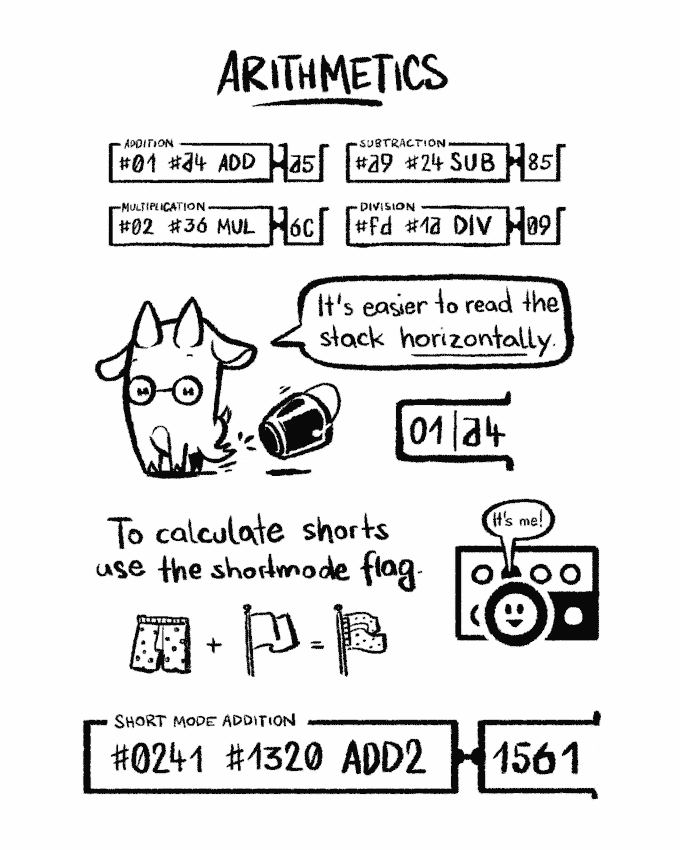 ARITHMETICS
ADDITION
#01 #a4 ADD a5
SUBTRACTION
#a9 #24 SUB 85
MULTIPLICATION
#02 #36 MUL 6C
DIVISION
#fd #1a DIV 09
It's easier to read the
stack horizontally.
01|a4
To calculate shorts
use the shortmode flag.
It's me!
+ =
SHORT MODE ADDITION
#0241 #1320 ADD2 1561